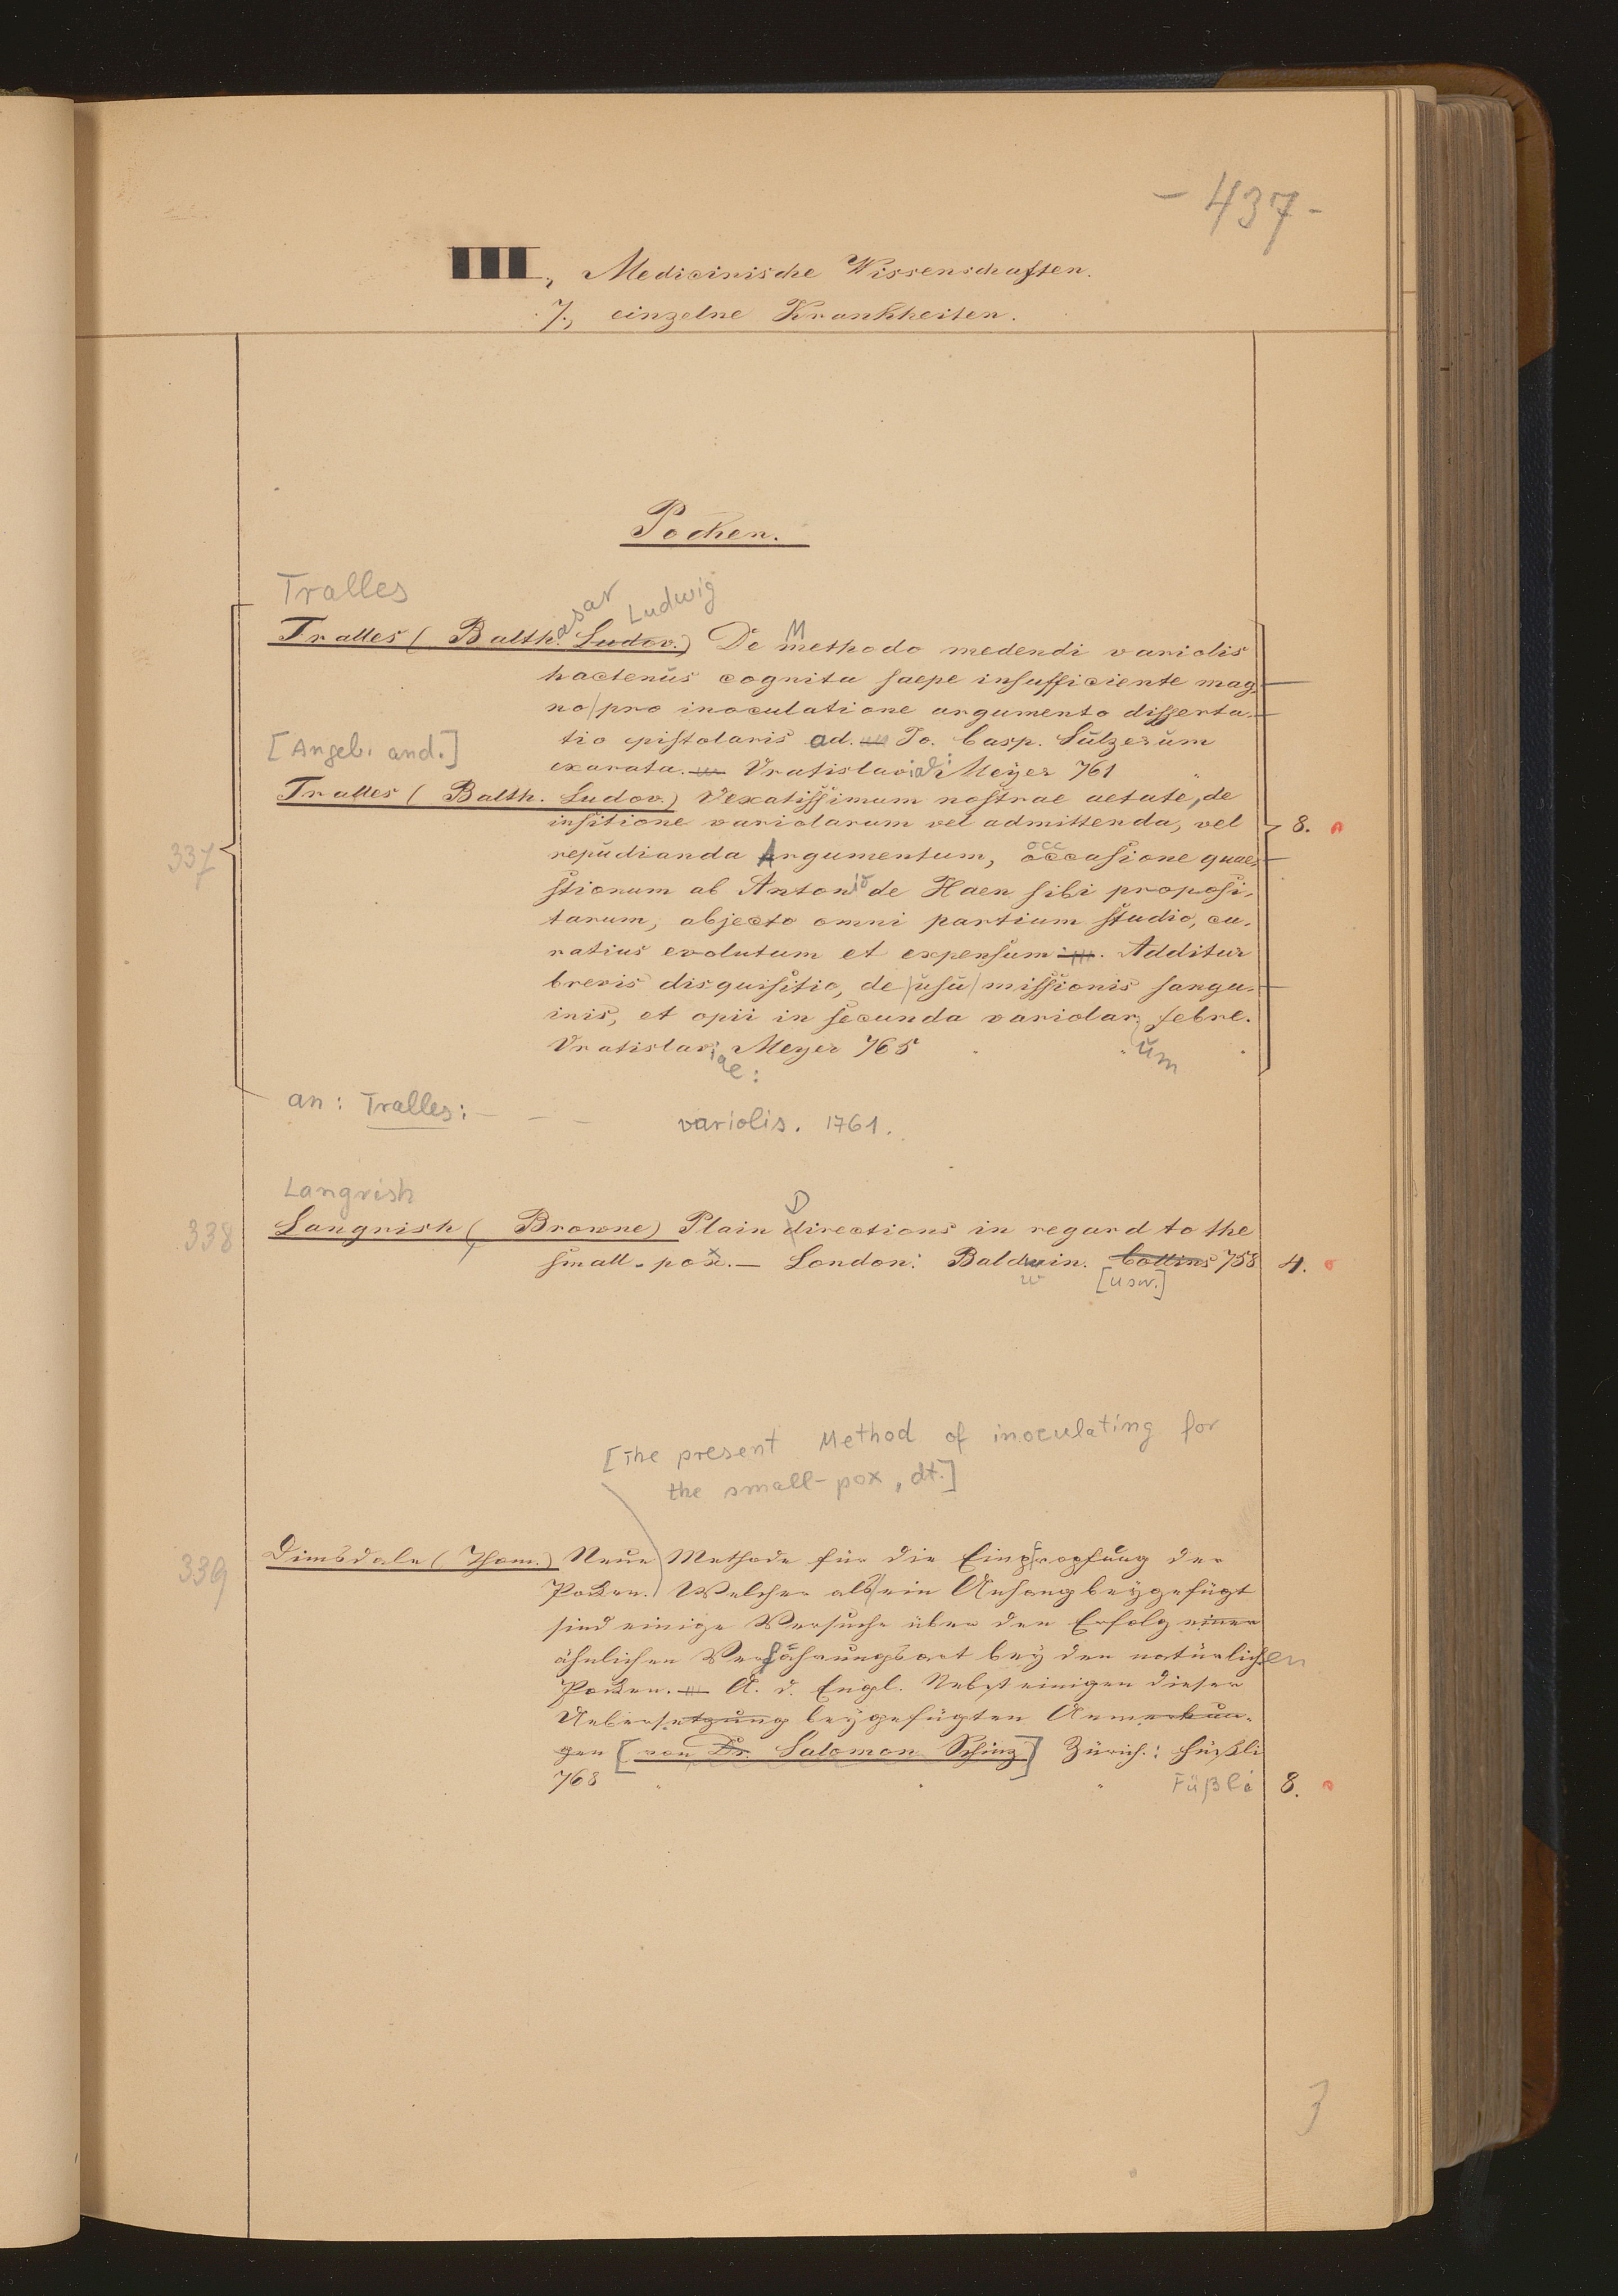 - 437 -
III., Medicinische Wissenschaften.
7., einzelne Krankheiten.
Pocken.
Tralles
asar Ludwig
Tralles ( Balth. Ludov.) De methodo medendi variolis
M
hactenŭs cognita saepe insufficiente mag-
no pro inoculatione argumento disserta-
tio epistolaris ad. Jo. Casp. Sŭlzerŭm
[Angeb. and.]
exarata. Vratislav Meyer 761
Tralles ( Balth. Ludov.) Vexatissimum nostrae aetate, de
insitione variolarum vel admittenda, vel
8.
337
repŭdianda Argumentum, occasione quae-
occ
stionum ab Antonio de Haen sibi proposi-
tarum, abjecto omni partium studio, cu-
ratius evolutum et expensum. Additur
brevis disquisitio, de ŭsŭ missionis sangu-
inis, et opii in secunda variolar. febre.
ŭm
Vratislaviae: Meyer 765
an: Tralles: - - - variolis. 1761.
Langrish
D
338
Langrish ( Browne) Plain directions in regard to the
small-pox. — London: Baldwin. Collins 758
4.
w [usw.]
[The present Method of inoculating for
the small-pox, dt.]
339
Dimsdale ( Thom.) Neue Methode für die Einpfropfung der
Pocken. Welcher als ein Anhang beygefügt
sind einige Versuche über den Erfolg einer
ähnlichen Verfährungsart bey den natürlichen
Pocken. A. d. Engl. Nebst einigen dieser
Uebersetzung beygefügten Anmerkun-
gen [von Dr. Salomon Schinz] Zürich.: Füßli
768
Füßli
8.
3